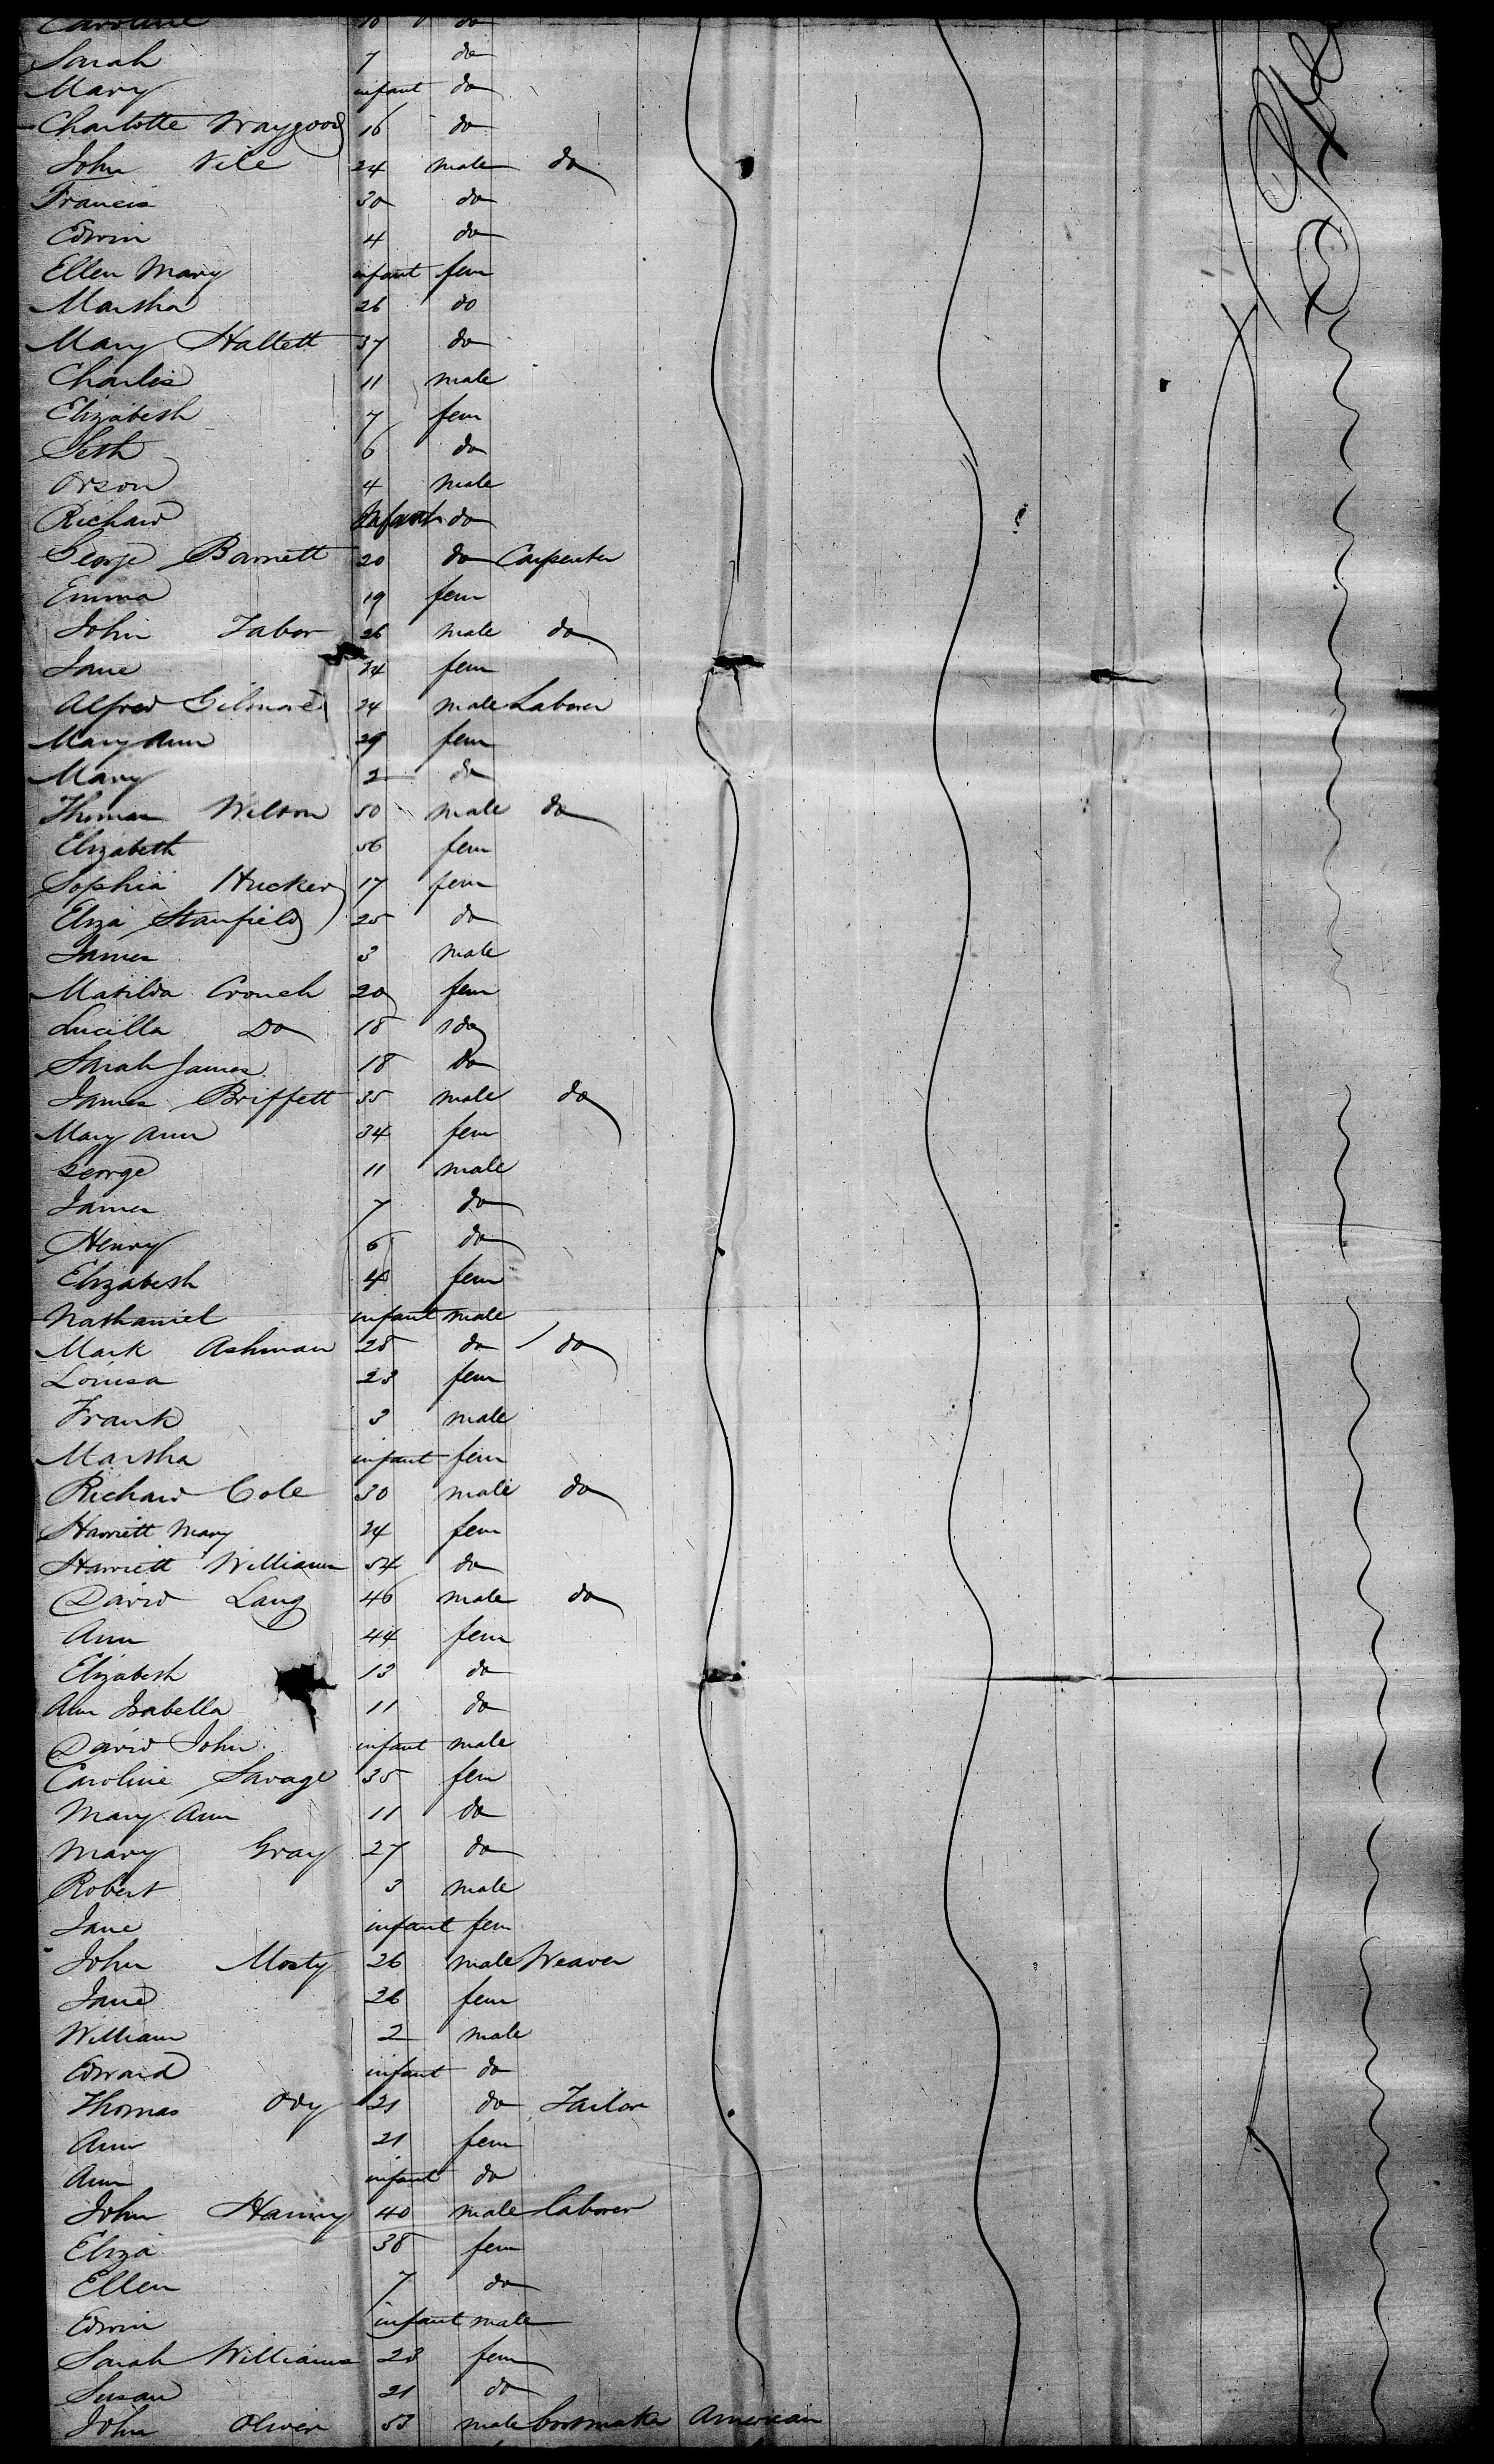 Caroline 10 do
Sarah 7 do
Mary infant do
Charlotte Waygood 16 do
John Vile 24 male do
Francis 30 do
Edwin 4 do
Ellen Mary infant fem
Martha 26 do
Mary Hallett 37 do
Charles 11 male
Elizabeth 7 fem
Seth 6 do
Orson 4 male
Richard Infant do
George Barnett 20 do Carpenter
Emma 19 fem
John Tabor 26 male do
Jane 24 fem
Alfred Gilmore 24 male Laborer
Mary Ann 29 fem
Mary 2 do
Thomas Wilton 50 male do
Elizabeth 56 fem
Sophia Hucker 17 fem
Eliza Stanfield 25 do
James 3 male
Matilda Crouch 20 fem
Lucilla Do 18 do
Sarah James 18 Do
James Briffett 35 male do
Mary Ann 34 fem
George 11 male
James 7 do
Henry 6 do
Elizabeth 4 fem
Nathaniel infant male
Mark Ashman 28 do do
Louisa 23 fem
Frank 3 male
Martha infant fem
Richard Cole 30 male do
Harriett Mary 24 fem
Harriett Williams 54 do
David Lang 46 male do
Ann 44 fem
Elizabeth 13 do
Ann Isabella 11 do
David John infant male
Caroline Savage 35 fem
Mary Ann 11 do
Mary Gray 27 do
Robert 3 male
Jane infant fem
John Mosty 26 male Weaver
Jane 26 fem
William 2 male
Edward infant do
Thomas Ody 21 do Tailor
Ann 21 fem
Ann infant do
John Haning 40 male laborer
Eliza 38 fem
Ellen 7 do
Edwin infant male
Sarah Williams 23 fem
Susan 21 do
John Oliver 53 male bootmaker American